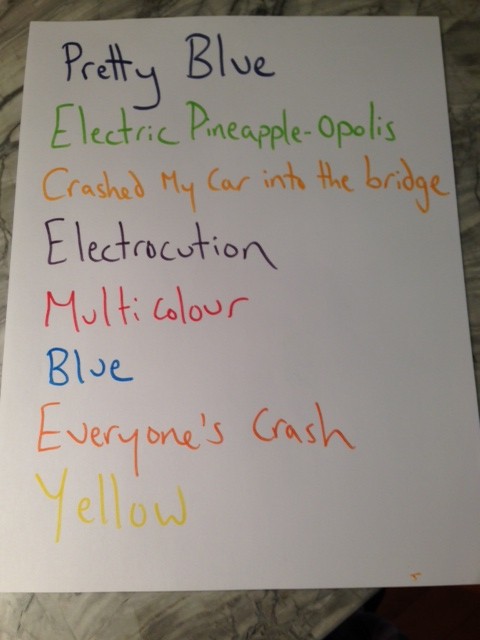 Pretty Blue
Electric Pineapple-Opolis
Crashed My Car into the bridge
Electrocution
Multicolour
Blue
Everyone's Crash
Yellow